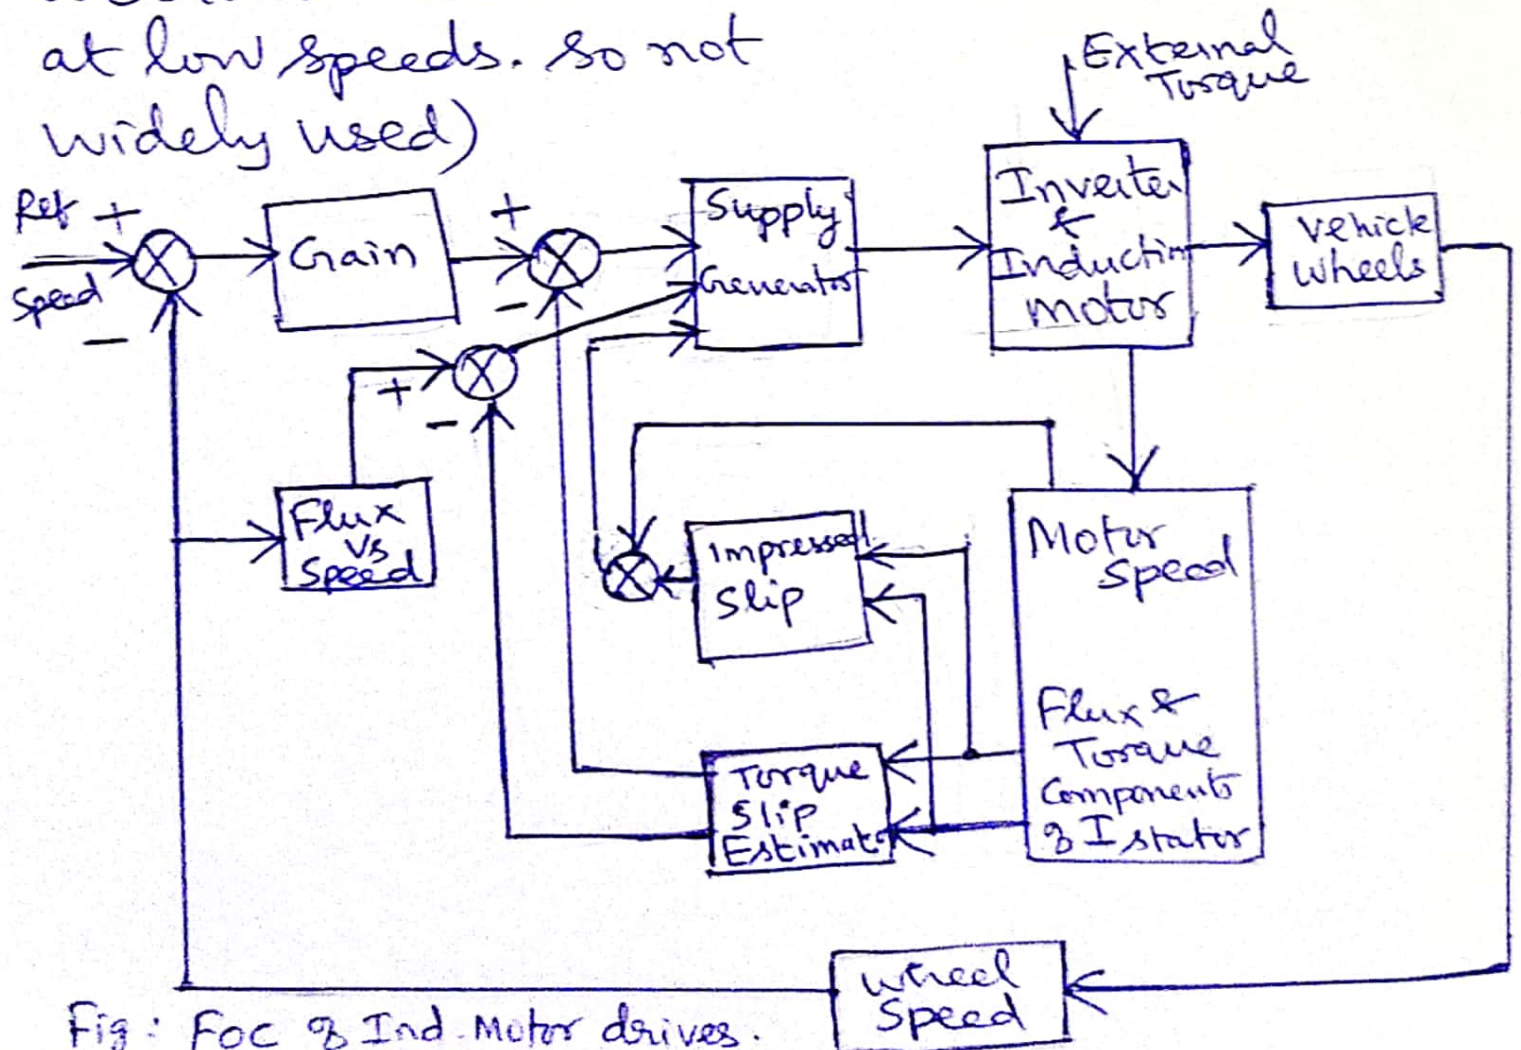 at low speeds. So not
widely used)
External
Torque
Ref +
Speed
-
Gain
+
-
Supply
Generator
Inverter
&
Induction
motor
Vehicle
Wheels
+
-
Flux
Vs
Speed
Impressed
Slip
Motor
Speed
Flux &
Torque
Components
of I stator
Torque
Slip
Estimat.
Wheel
Speed
Fig: FOC of Ind. Motor drives.